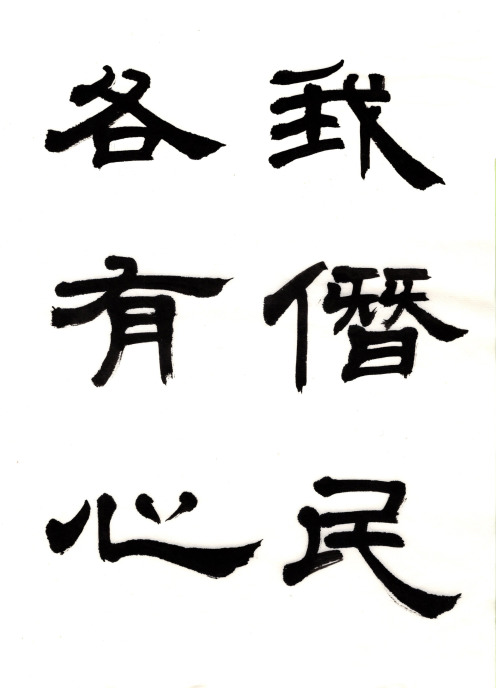 我僭民
各有心